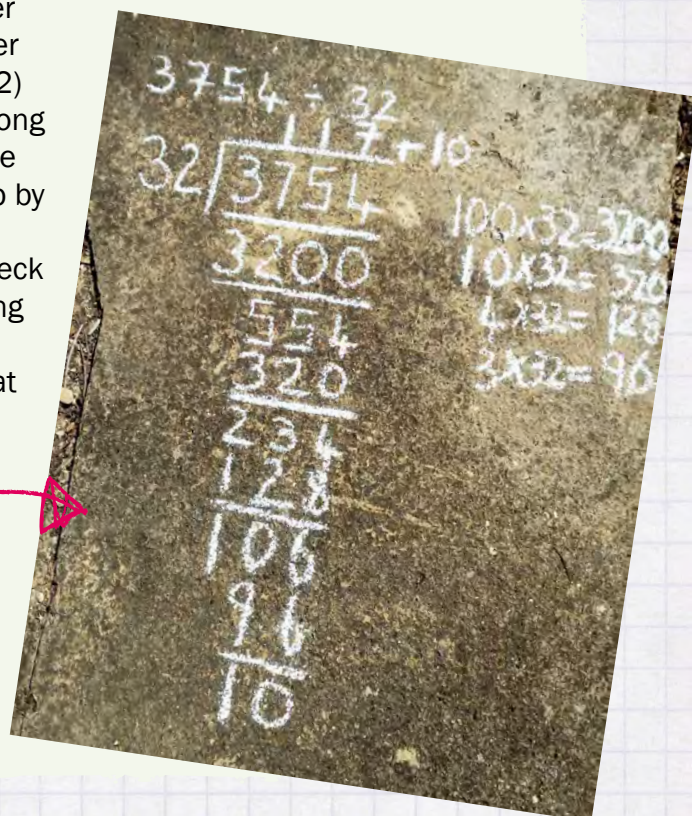 er
er
2)
ong
e
o by
eck
ng
at
3754 ÷ 32
117 + 10
32 3754
3200
554
320
234
128
106
96
10
100x32=3200
10x32= 320
4x32= 128
3x32= 96